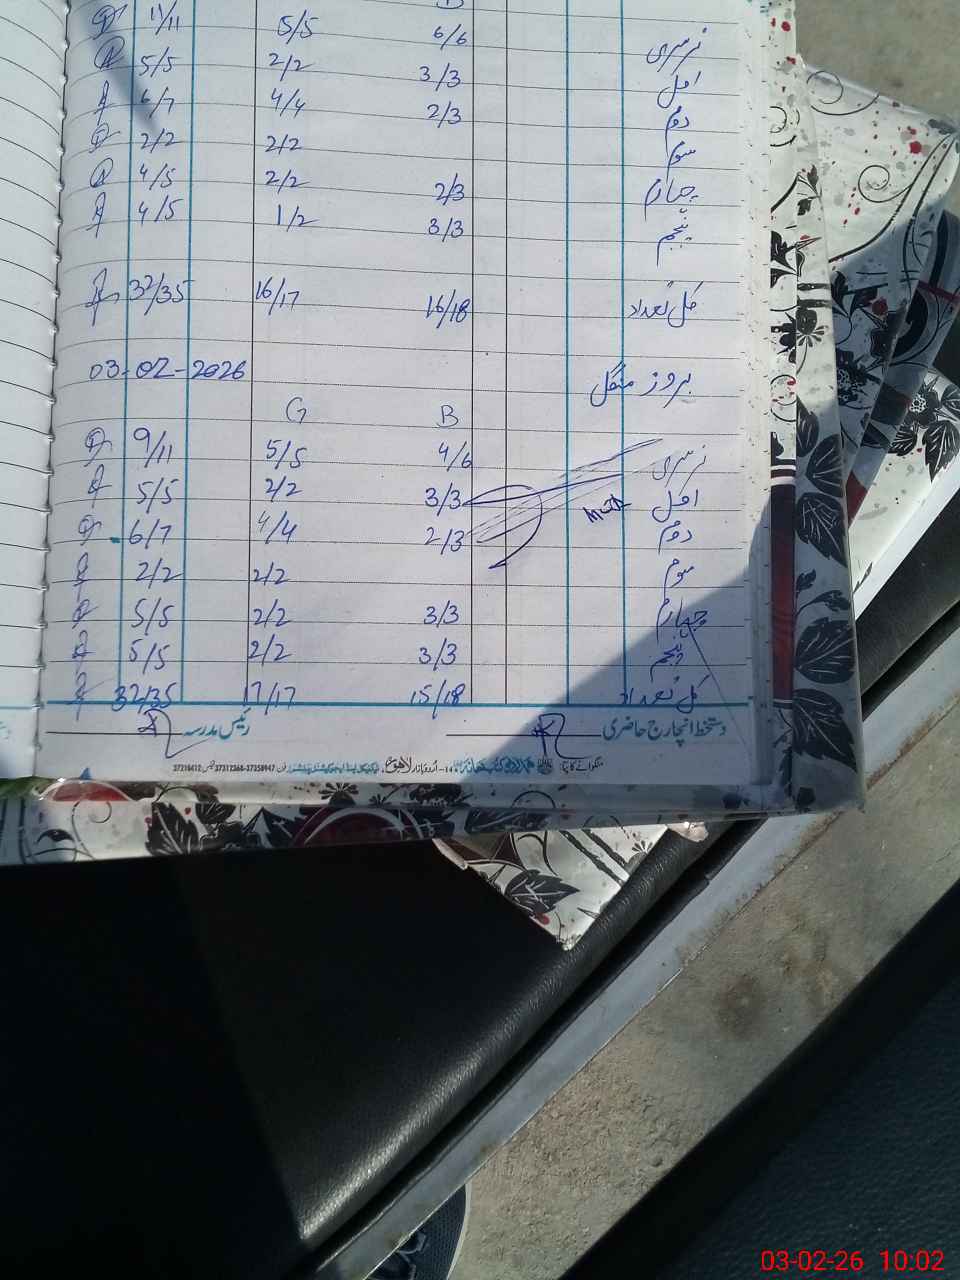 نرسری 6/6 5/5 11/11
اول 3/3 2/2 5/5
دوم 2/3 4/4 6/7
سوم 2/2 2/2
چہارم 2/3 2/2 4/5
پنجم 3/3 1/2 4/5
کل تعداد 16/18 16/17 32/35
بروز منگل 03-02-2026
B G
نرسری 4/6 5/5 9/11
اول 3/3 2/2 5/5
دوم 2/3 4/4 6/7
سوم 2/2 2/2
چہارم 3/3 2/2 5/5
پنجم 3/3 2/2 5/5
کل تعداد 15/18 17/17 32/35
دستخط انچارج حاضری رئیس مدرسہ
منگوانے کا پتہ: 14-اردو بازار لاہور، فون 37312368-37358947 فیکس 37210412
03-02-26 10:02